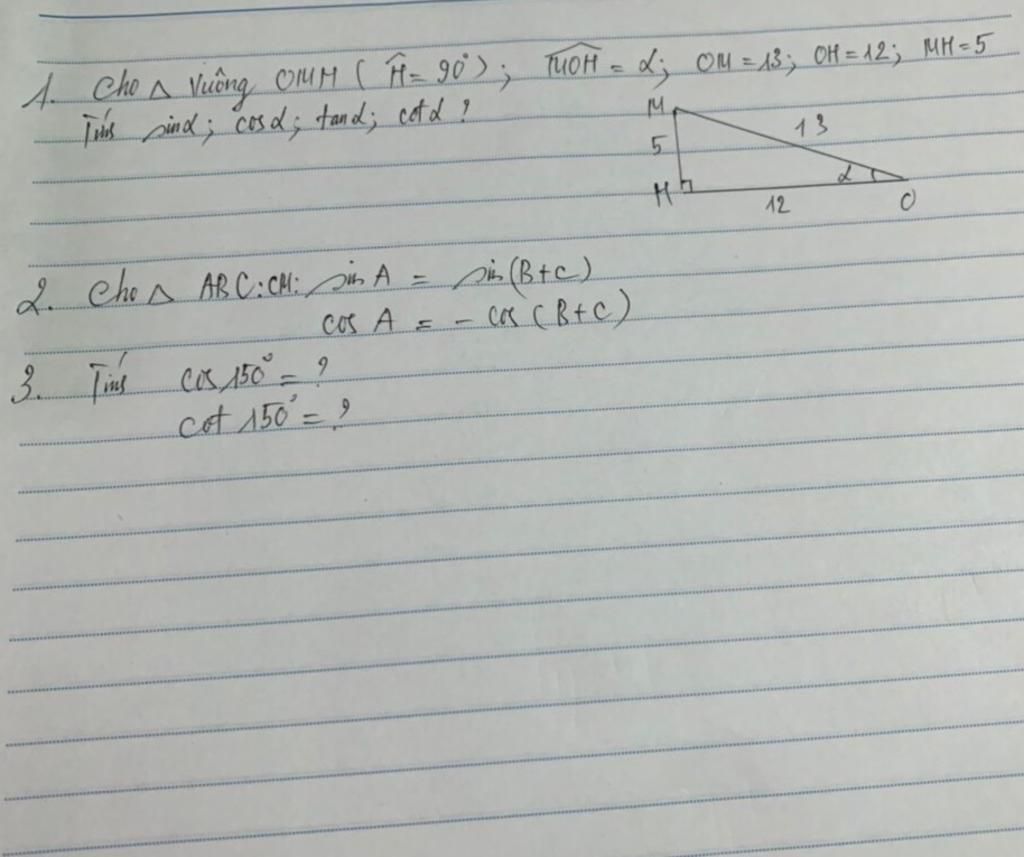 1. Cho △ Vuông OMH (Ĥ = 90°); M̂OH = α; OM = 13; OH = 12; MH = 5
Tính sinα; cosα; tanα; cotα?
M
13
5
α
H
12
O
2. Cho △ ABC: CM: sin A = sin(B+C)
cos A = - cos (B+C)
3. Tính cos 150° = ?
cot 150° = ?